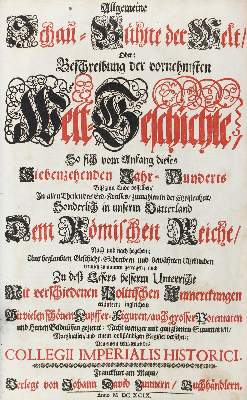 Allgemeine
Schau-Bühne der Welt/
Oder:
Beschreibung der vornehmsten
Welt-Geschichte/
So sich vom Anfang dieses
Siebenzehenden Jahr-Hunderts
Biß zum Ende desselben/
In allen Theilen des Erd-Kreises/ zumahlen in der Christenheit/
Sonderlich in unserm Vatterland
Dem Römischen Reiche/
Nach und nach begeben;
Zu deß Lesers besserm Unterricht
Mit verschiedenen Politischen Anmerckungen
Mit vielen schönen Kupffer-Figuren/ auch grosser Potentaten
COLLEGII IMPERIALIS HISTORICI.
Franckfurt am Mayn/
Verlegt von Johann David Zunnern/ Buchhändlern.
Anno M. DC XCIX.